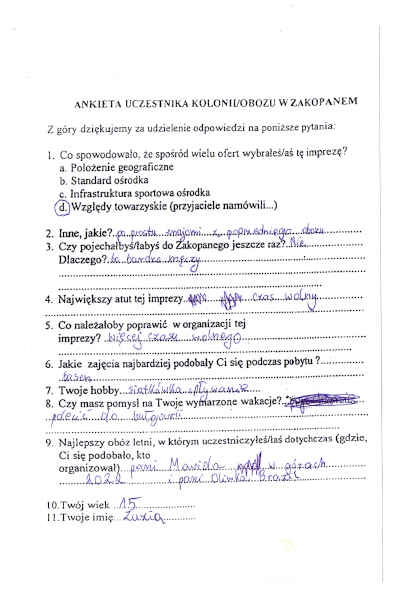 ANKIETA UCZESTNIKA KOLONII/OBOZU W ZAKOPANEM
Z góry dziękujemy za udzielenie odpowiedzi na poniższe pytania:
1. Co spowodowało, że spośród wielu ofert wybrałeś/aś tę imprezę?
a. Położenie geograficzne
b. Standard ośrodka
c. Infrastruktura sportowa ośrodka
d. Względy towarzyskie (przyjaciele namówili...)
2. Inne, jakie? po prostu znajomi z poprzedniego obozu
3. Czy pojechałbyś/łabyś do Zakopanego jeszcze raz? Nie
Dlaczego? bo bardzo męczy
4. Największy atut tej imprezy czas wolny
5. Co należałoby poprawić w organizacji tej
imprezy? więcej czasu wolnego
6. Jakie zajęcia najbardziej podobały Ci się podczas pobytu?
basen
7. Twoje hobby siatkówka pływanie
8. Czy masz pomysł na Twoje wymarzone wakacje?
polecieć do bułgarii
9. Najlepszy obóz letni, w którym uczestniczyłeś/łaś dotychczas (gdzie,
Ci się podobało, kto
organizował) pani w górach
2022 i pani
10. Twój wiek 15
11. Twoje imię